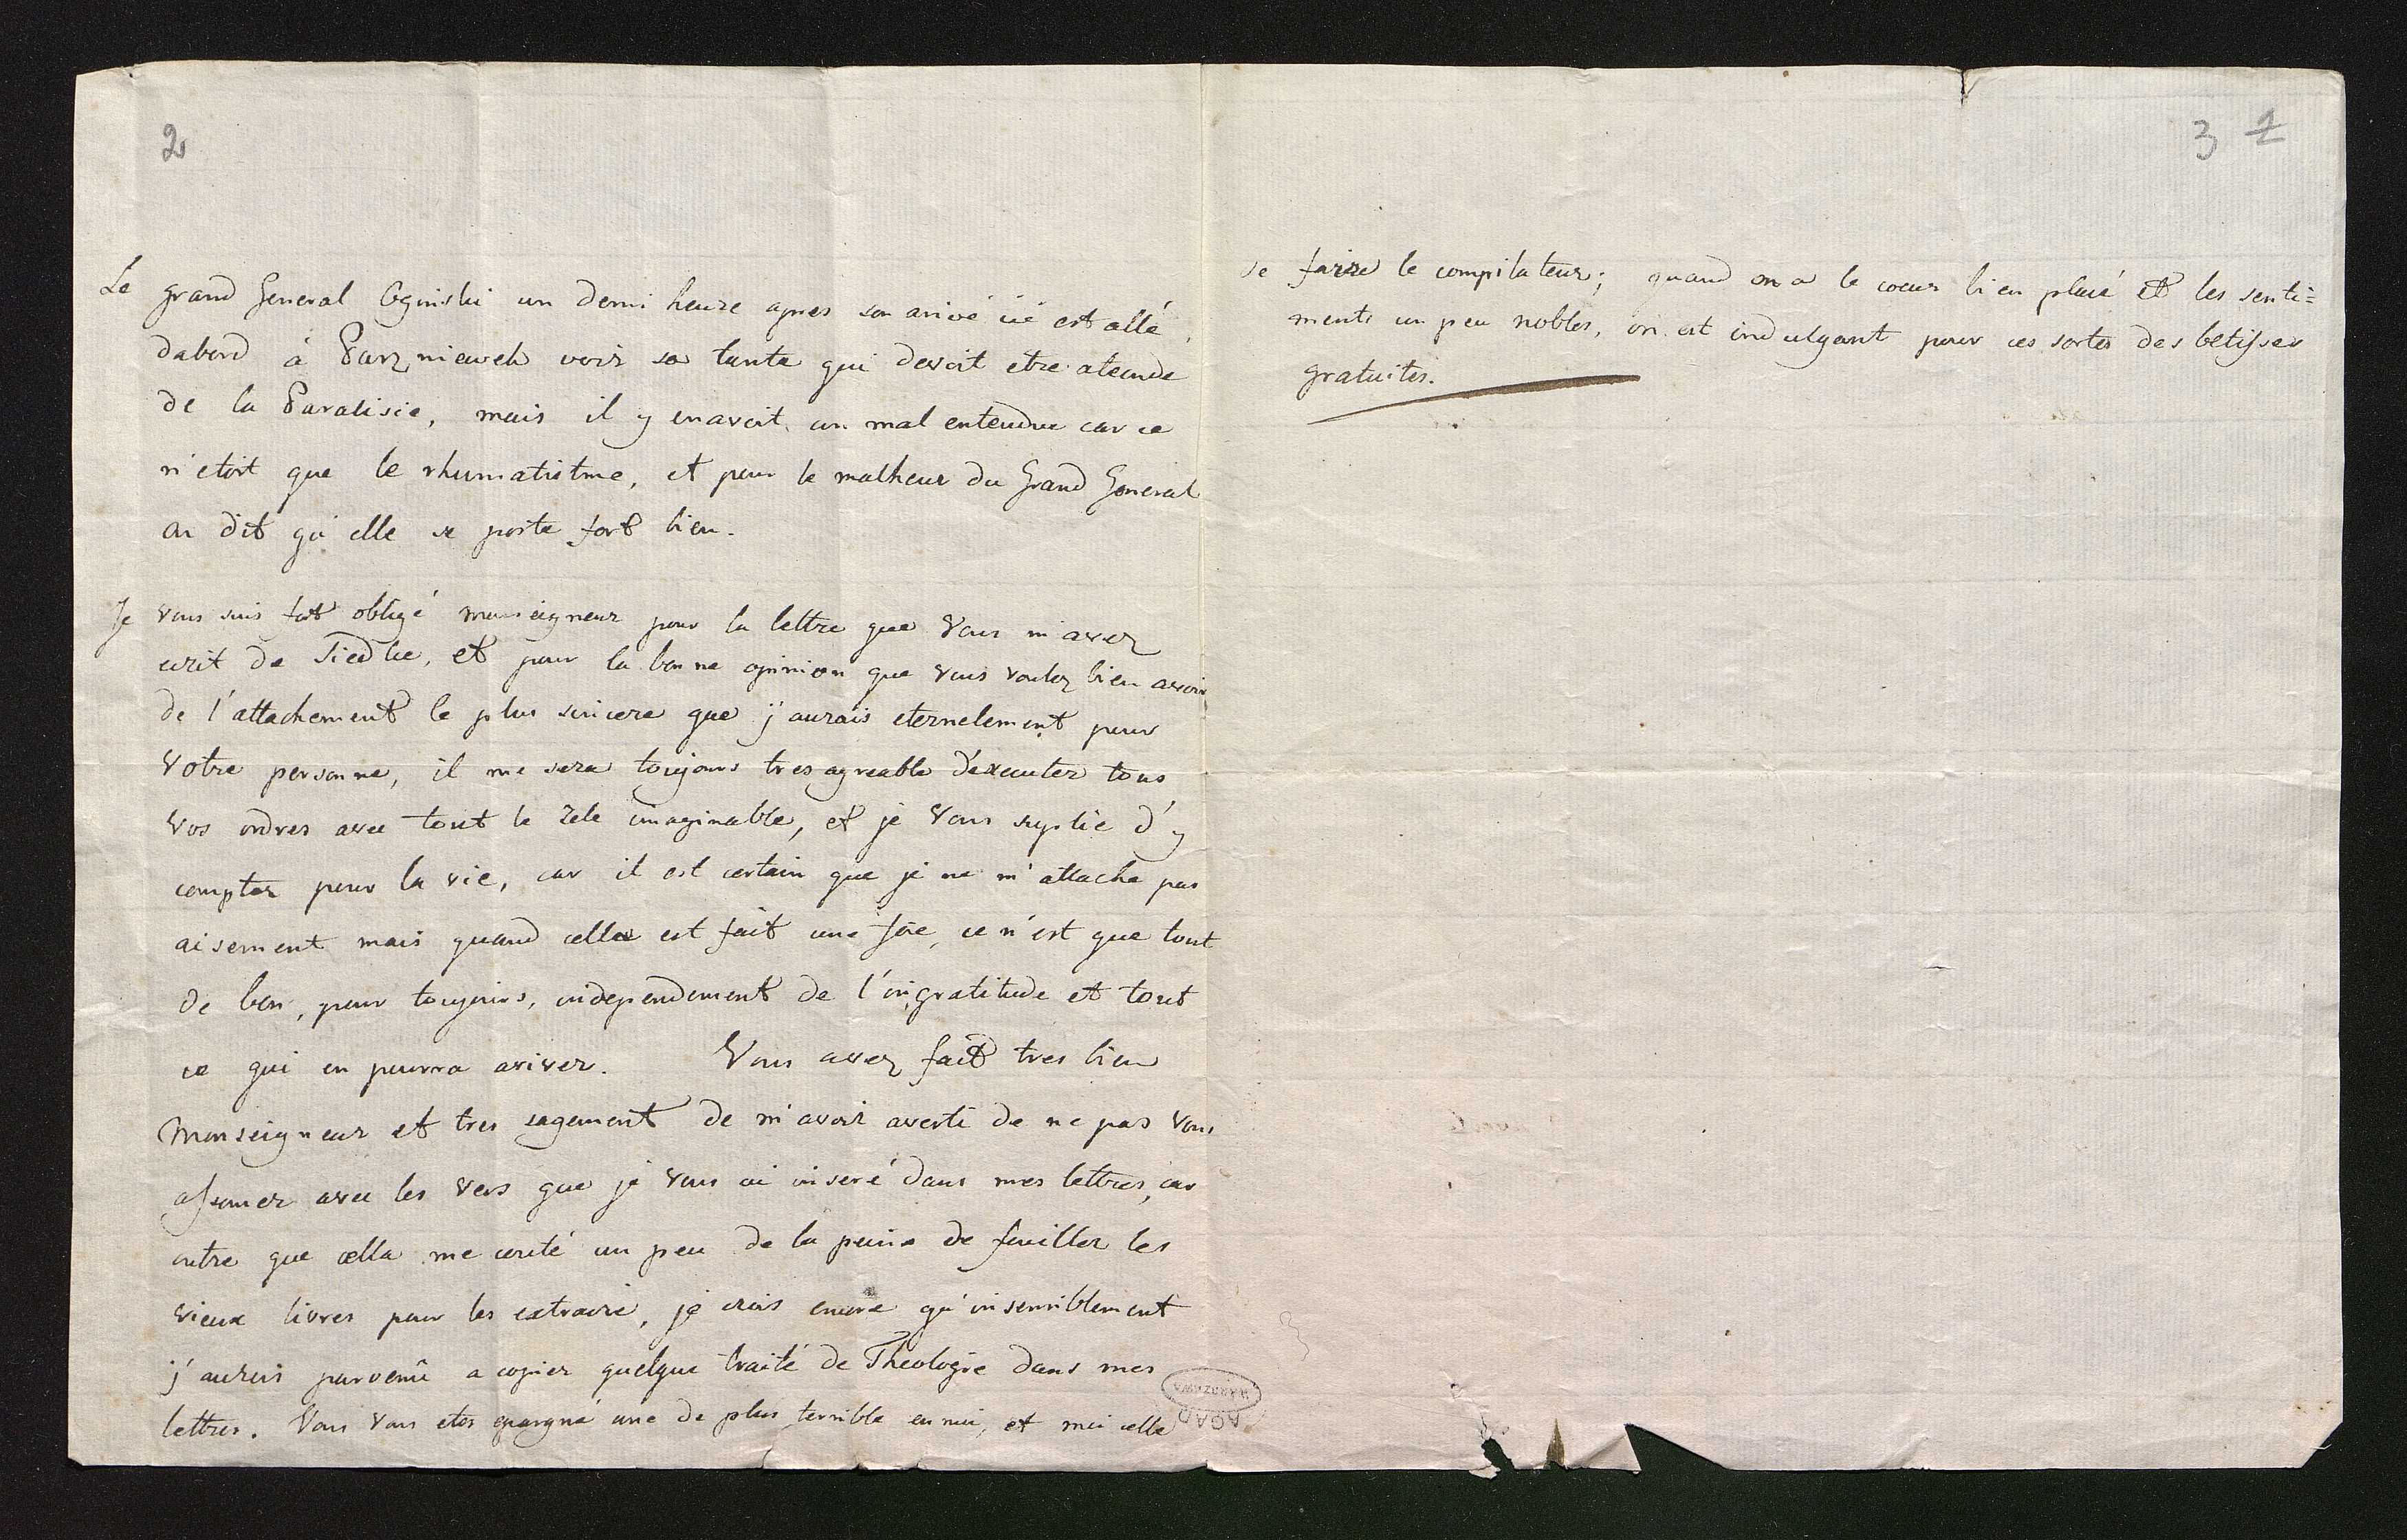 2
Le grand General Oginski un demi heure apres son arivé icé est allé
dabord à Parzniewek voir sa tante qui devoit etre ateinde
de la Paralisie, mais il y enavoit un mal entendue car ce
n'etoit que le rhumatistme, et pour le malheur du Grand General
on dit qu'elle se porte fort bien.
Je vous suis fort obligé monseigneur pour la lettre que Vous m'avez
ecrit de Siedlce, et pour la bonne opinion que vous voulez bien avoir
de l'attachement le plus sincere que j'aurais eternelement pour
Votre personne, il me sera toujours tres agreable d'executer tous
Vos ordres avec tout le zele imaginable, et je Vous suplie d'y
compter pour la vie, car il est certain que je ne m'attache pas
aisement mais quand cella est fait une foie, ce n'est que tout
de bon, pour toujours, independement de l'ingratitude et tout
ce qui en pourra ariver. Vous avez fait tres bien
Monseigneur et tres sagement de m'avoir averti de ne pas Vous
assomer avec les vers que je vous ai inseré dans mes lettres, car
outre que cella me couté un peu de la peine de fouiller les
vieux livres pour les extraire, je crois encore qu'insensiblement
j'aurais parvenû a copier quelque traité de Theologie dans mes
lettres. Vous Vous etes epargné une de plus terrible ennui, et moi celle
AGAD
WARSZAWA
3 2
de faire le compilateur; quand on a le coeur bien placé et les senti=
ments un peu nobles, on est indulgant pour ces sortes des betisses
gratuites.